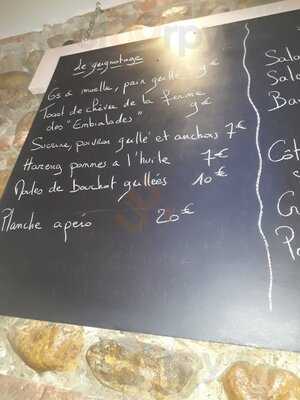 de grignotage
Os à moelle, pain grillé 9€
Toast de chèvre de la ferme
des "Embialades" 9€
Sucrine, poivron grillé et anchois 7€
Hareng pommes à l'huile 7€
Moules de Bouchot grillées 10€
Planche apéro 20€
Sala
Sala
Ba
Côt